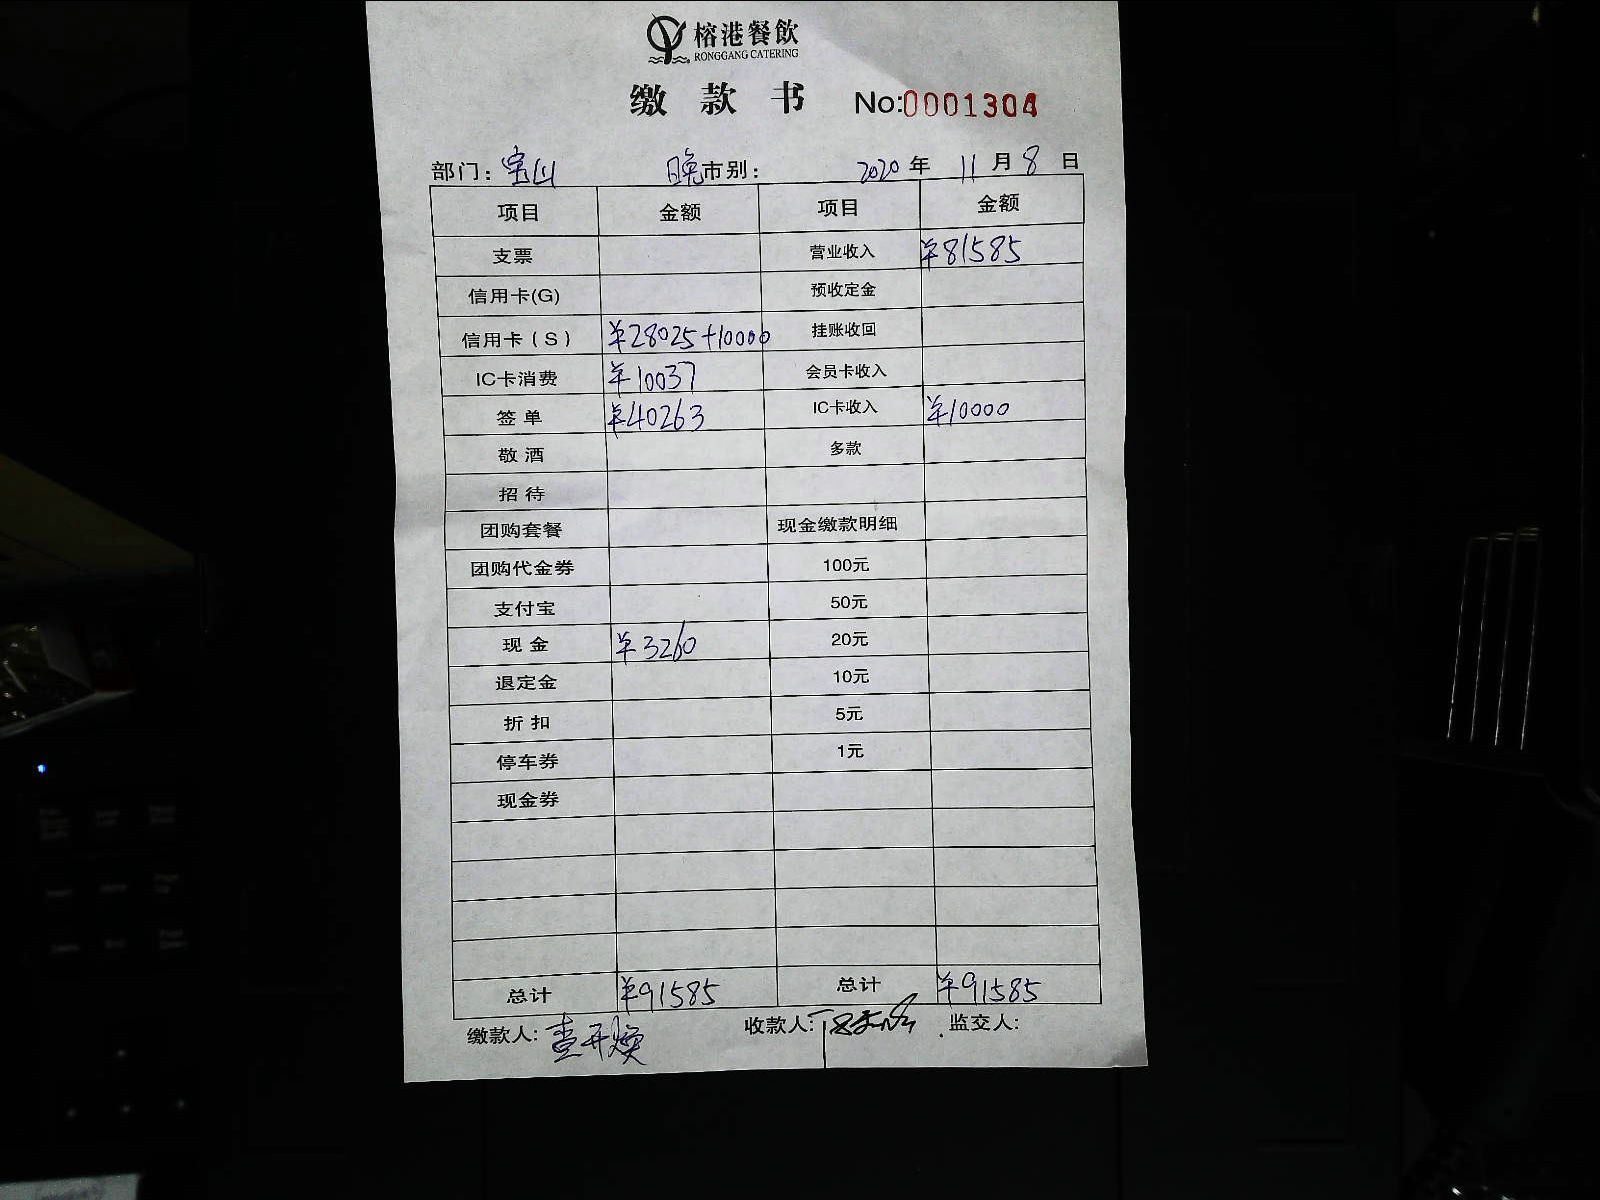 榕港餐飲
RONGGANG CATERING
缴款书 No:0001304
部门: 宝山 晚市别: 2020年 11月8日
项目 金额 项目 金额
支票 营业收入 ¥81585
信用卡(G) 预收定金
信用卡(S) ¥28025+10000 挂账收回
IC卡消费 ¥10037 会员卡收入
签单 ¥40263 IC卡收入 ¥10000
敬酒 多款
招待
团购套餐 现金缴款明细
团购代金券 100元
支付宝 50元
现金 ¥3260 20元
退定金 10元
折扣 5元
停车券 1元
现金券
总计 ¥91585 总计 ¥91585
缴款人: 查开焕 收款人: 监交人: